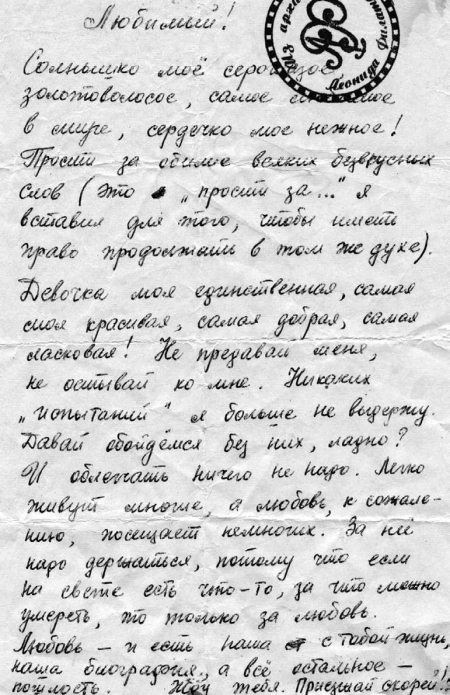 Любимый!
ИЗ архи
Леонида Филат
Солнышко моё
золотоволосое, самое
в мире, сердечко мое нежное!
Прости за обилие всяких безвкусных
слов (это „прости за..." я
вставил для того, чтобы иметь
право продолжать в том же духе).
Девочка моя единственная, самая
моя красивая, самая добрая, самая
ласковая! Не предавай меня,
не остывай ко мне. Никаких
„испытаний" я больше не выдержу.
Давай обойдёмся без них, ладно?
И облегчать ничего не надо. Легко
живут многие, а любовь, к сожале-
нию, посещает немногих. За неё
надо держаться, потому что если
на свете есть что-то, за что можно
умереть, это только за любовь.
Любовь – и есть наша с тобой жизнь,
наша биография, а всё остальное –
пошлость. Жду тебя. Приезжай скорей!